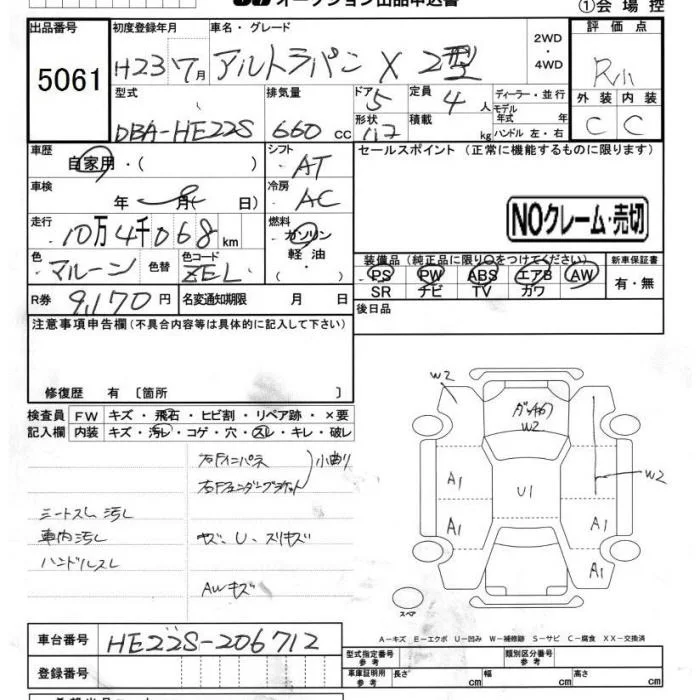 オークション出品申込書
①会場控
出品番号
5061
初度登録年月
H23 7月
車名・グレード
アルトラパン X 2型
2WD
・
4WD
評価点
R
外装 内装
C C
型式
DBA-HE22S
排気量
660 cc
ドア 5
形状
定員 4 人
積載 kg
ディーラー・並行
モデル年式 年
ハンドル 左・右
車歴
自家用・( )
シフト
AT
セールスポイント (正常に機能するものに限ります)
車検
年 月( 日)
冷房
AC
NOクレーム・売切
走行
10万4千068km
燃料
ガソリン
軽油
( )
色
マルーン
色替
色コード
ZEL
装備品(純正品に限り○をつけてください)
PS PW ABS エアB AW
SR ナビ TV カワ
新車保証書
有・無
R券 9,170円
名変通知期限 月 日
後日品
注意事項申告欄(不具合内容等は具体的に記入して下さい)
修復歴 有 〔箇所 〕
検査員記入欄
FW キズ・飛石・ヒビ割・リペア跡・×要
内装 キズ・汚レ・コゲ・穴・スレ・キレ・破レ
右Fインパネ
小曲り
シートスレ 汚レ
車内汚レ
ハンドルスレ
キズ、U、スリキズ
AWキズ
W2
W2
W2
A1
A1
U1
A1
A1
スペア
A-キズ E-エクボ U-凹み W-補修跡 S-サビ C-腐食 XX-交換済
車台番号 HE22S-206712
登録番号
型式指定番号 参考
類別区分番号 参考
車庫証明用 参考 長さ cm 幅 cm 高さ cm